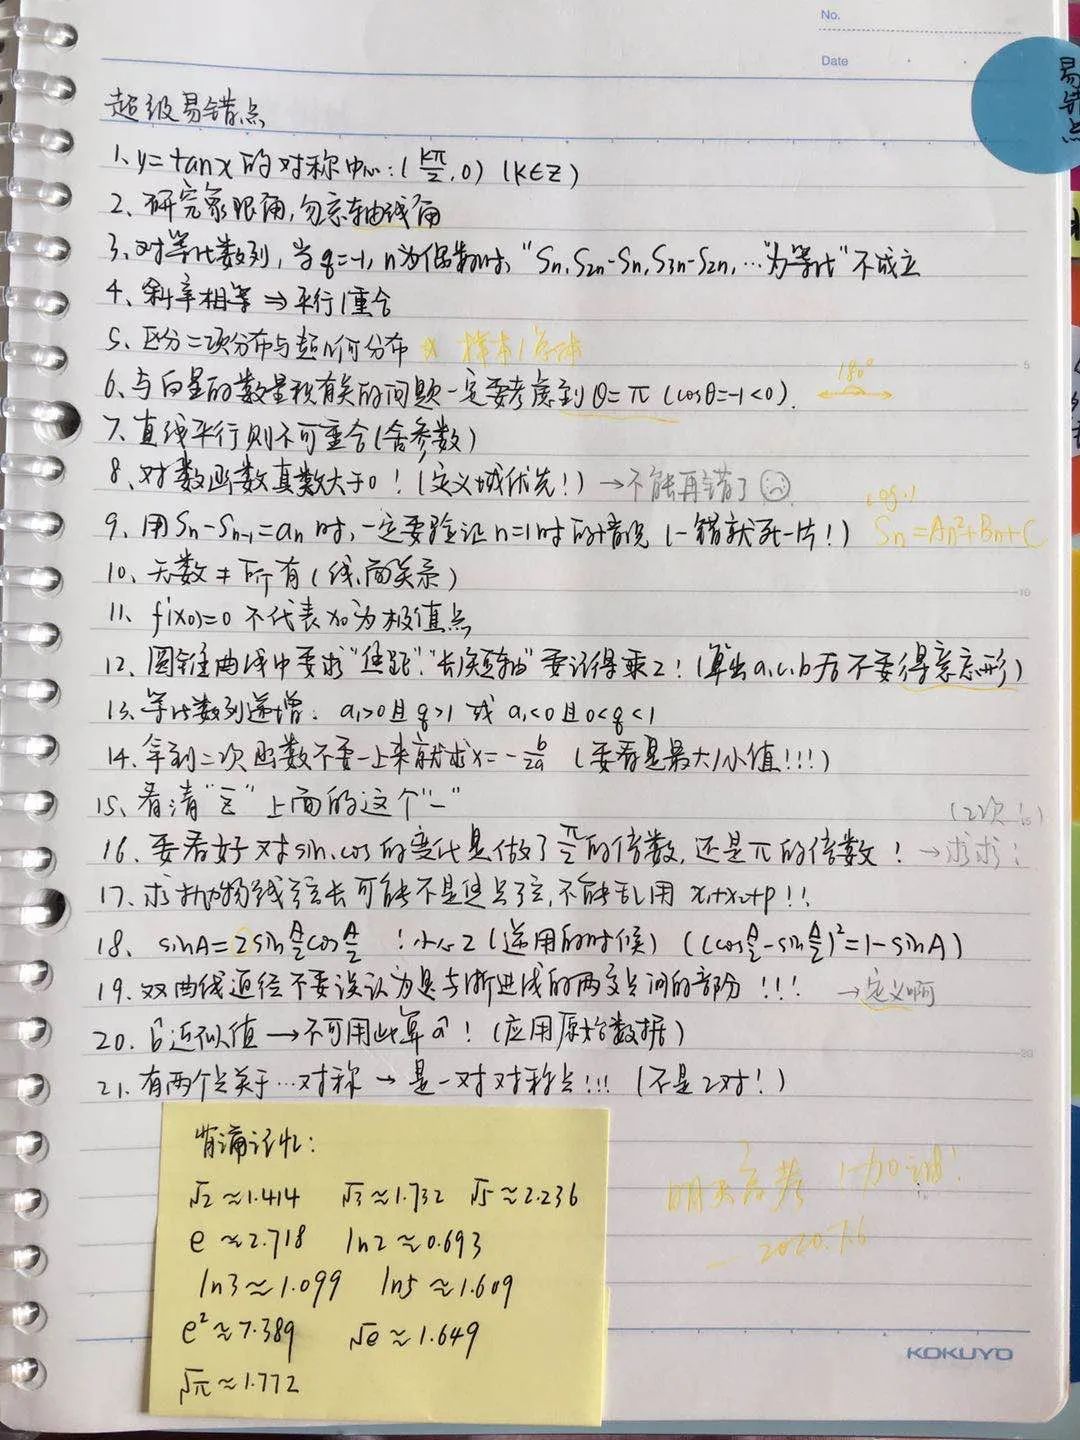 No.
Date
易错点
超级易错点
1、y=tanx的对称中心:(kπ/2,0) (k∈Z)
2、研究象限角,勿忘轴线角
3、对等比数列,当q=-1,n为偶数时,"Sn,S2n-Sn,S3n-S2n,…为等比"不成立
4、斜率相等⇒平行/重合
5、区分二项分布与超几何分布 样本/总体
6、与向量的数量积有关的问题一定要考虑到θ=π (cosθ=-1<0). 180°
7、直线平行则不可重合(含参数)
8、对数函数真数大于0!(定义域优先!)→不能再错了
9、用Sn-Sn-1=an时,一定要验证n=1时的情况(一错就死一片!) Sn=An²+Bn+C
10、无数≠所有(线、面关系)
11、f'(x0)=0不代表x0为极值点
12、圆锥曲线中要求"焦距""长/短轴"要记得乘2!(算出a,c,b后不要得意忘形)
13、等比数列递增:a1>0且q>1 或 a1<0且0<q<1
14、拿到二次函数不要一上来就求x=-b/2a (要看是最大/小值!!!)
15、看清"z̄"上面的这个"-"
16、要看好对sin、cos的变化是做了π/2的倍数,还是π的倍数!→求求! (2次!)
17、求抛物线弦长可能不是焦点弦,不能乱用x1+x2+p!!
18、sinA=2sinA/2cosA/2 !小心2(逆用的时候) ((cosA/2-sinA/2)²=1-sinA)
19、双曲线通径不要误认为是与渐进线的两交点间的部分!!! →定义啊
20、b̂近似值→不可用此算â!(应用原始数据)
21、有两个点关于…对称→是一对对称点!!!(不是2对!)
背诵记忆:
√2≈1.414 √3≈1.732 √5≈2.236
e≈2.718 ln2≈0.693
ln3≈1.099 ln5≈1.609
e²≈7.389 √e≈1.649
√π≈1.772
明天高考 加油!
2020.7.6
KOKUYO